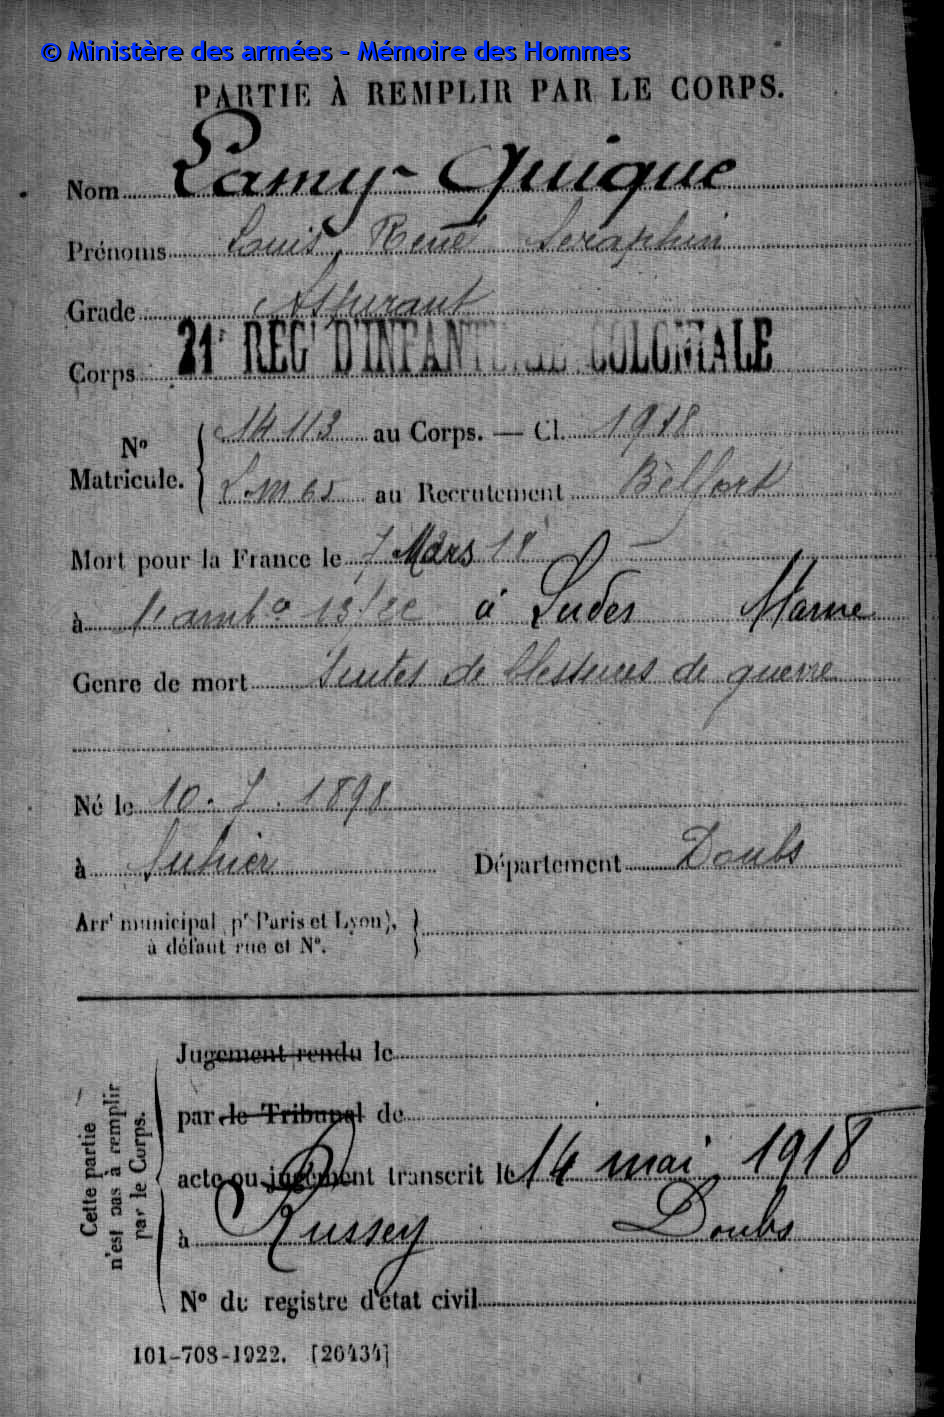 © Ministère des armées - Mémoire des Hommes
PARTIE À REMPLIR PAR LE CORPS.
Nom Lamy-Quique
Prénoms Louis René Séraphin
Grade Aspirant
Corps 21e REGt D'INFANTERIE COLONIALE
No Matricule. { 14113 au Corps. — Cl. 1918
au Recrutement Belfort
Mort pour la France le 7 Mars 18
à l'ambce à Ludes Marne
Genre de mort Suites de blessures de guerre
Né le 10. 7. 1898
à Département Doubs
Arrt municipal (pr Paris et Lyon), à défaut rue et No. }
Jugement rendu le
par le Tribunal de
acte ou jugement transcrit le 14 mai 1918
à Russey Doubs
No du registre d'état civil
Cette partie n'est pas à remplir par le Corps.
101-708-1922. [26434]